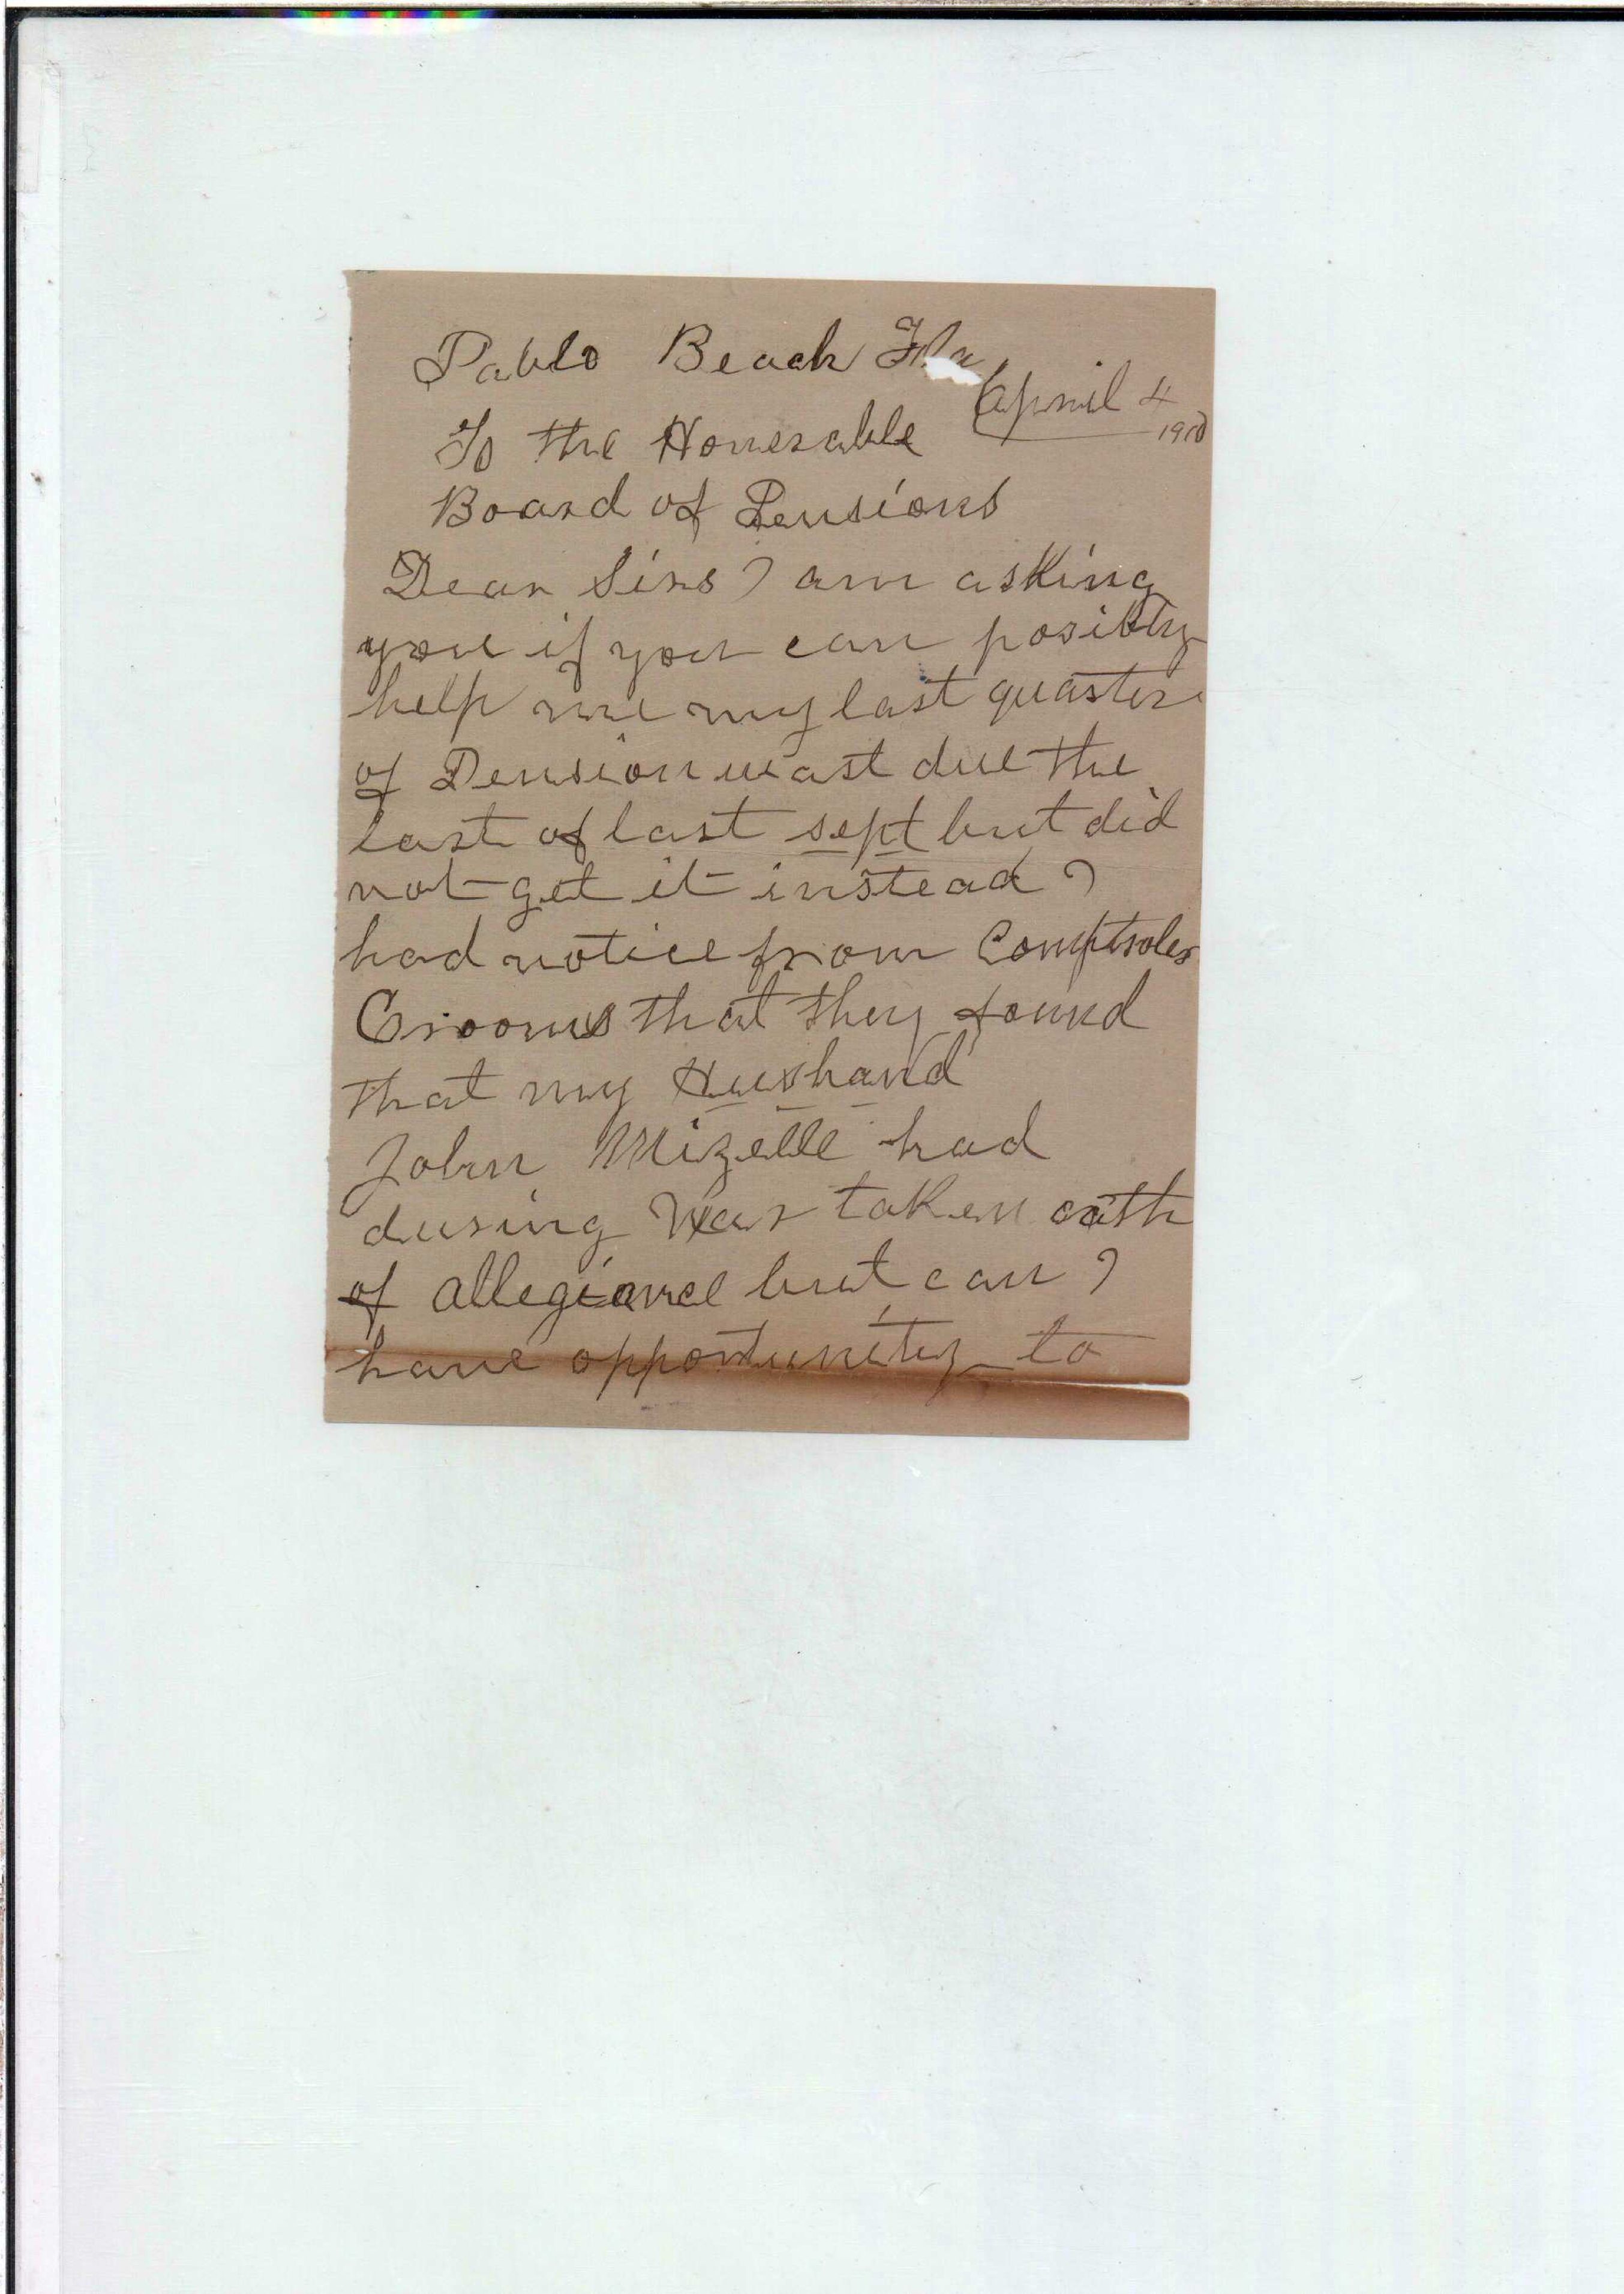 Pablo Beach Fla
April 4
1910
To the Honerable
Board of Pensions
Dear Sirs I am asking
you if you can posibly
help me my last quarter
of Pension wast due the
last of last sept but did
not get it instead I
had notice from Comptroler
Crooms that they found
that my Husband
John Mizelle had
during War taken oath
of allegiance but can I
have opportunity to